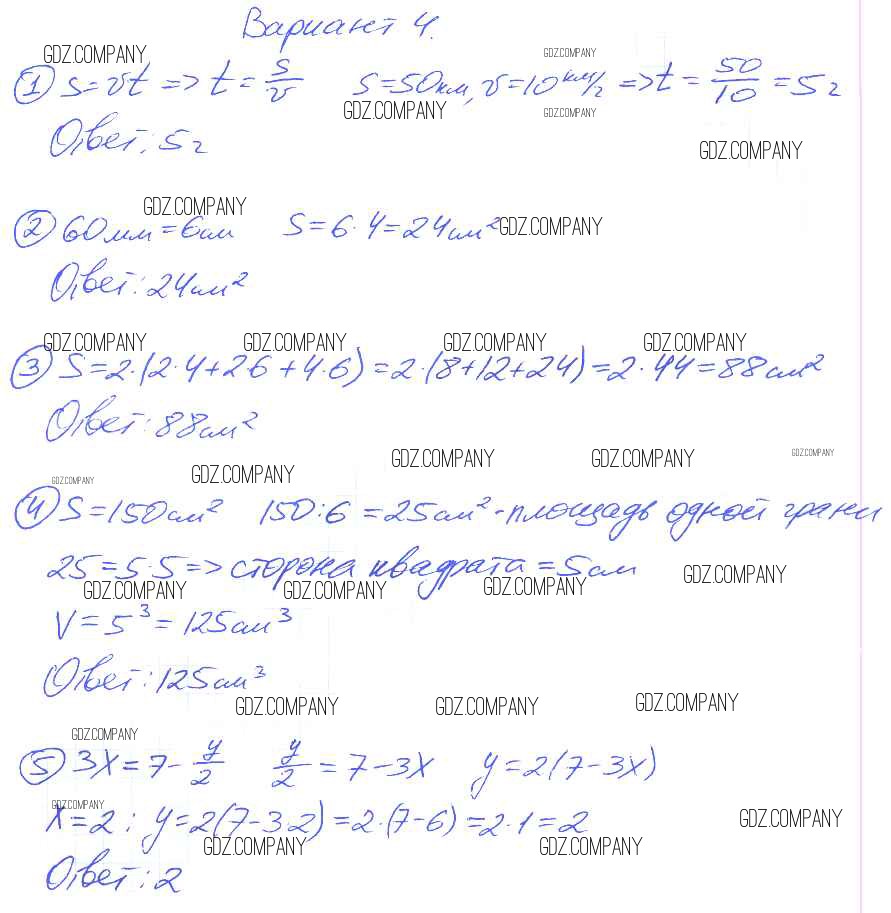 Вариант 4.
GDZ.COMPANY GDZ.COMPANY
① S=vt => t = s/v S=50км, v=10 км/ч => t = 50/10 = 5ч
GDZ.COMPANY GDZ.COMPANY
Ответ: 5ч
GDZ.COMPANY
GDZ.COMPANY
② 60мм = 6см S = 6·4 = 24см² GDZ.COMPANY
Ответ: 24см²
GDZ.COMPANY GDZ.COMPANY GDZ.COMPANY GDZ.COMPANY
③ S=2·(2·4+2·6+4·6)=2·(8+12+24)=2·44=88см²
Ответ: 88см²
GDZ.COMPANY GDZ.COMPANY GDZ.COMPANY
GDZ.COMPANY GDZ.COMPANY
④ S=150см² 150:6 = 25см² - площадь одной грани
25 = 5·5 => сторона квадрата = 5см
GDZ.COMPANY GDZ.COMPANY GDZ.COMPANY GDZ.COMPANY
V = 5³ = 125см³
Ответ: 125см³
GDZ.COMPANY GDZ.COMPANY GDZ.COMPANY
GDZ.COMPANY
⑤ 3x = 7 - y/2 y/2 = 7 - 3x y = 2(7-3x)
GDZ.COMPANY
x=2; y=2(7-3·2)=2·(7-6)=2·1=2
GDZ.COMPANY
GDZ.COMPANY GDZ.COMPANY
Ответ: 2